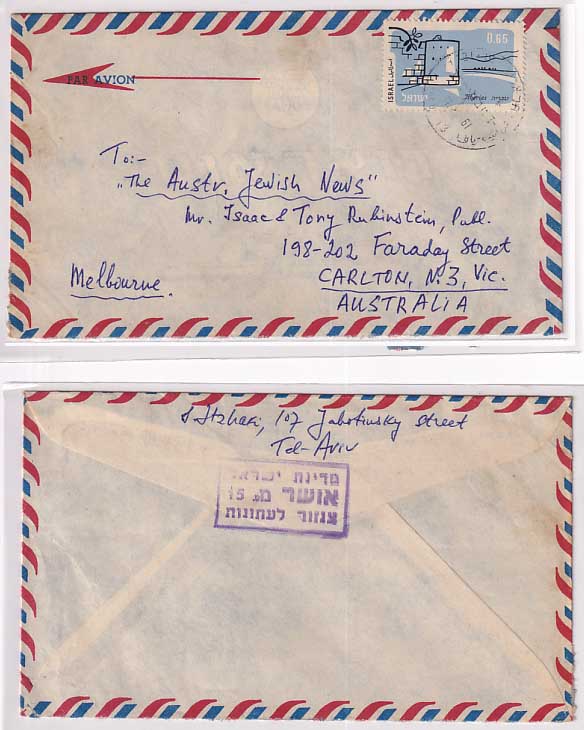 0.65
ISRAEL
ישראל
Memorial
PAR AVION
To:-
„The Austr. Jewish News"
Mr. Isaac & Tony Rubinstein, Publ.
198-202 Faraday Street
Melbourne. CARLTON, N.3, Vic.
AUSTRALIA
S Itzhaki, 107 Jabotinsky Street
Tel-Aviv
מדינת ישראל
אושר מס 15
צנזור לעתונות